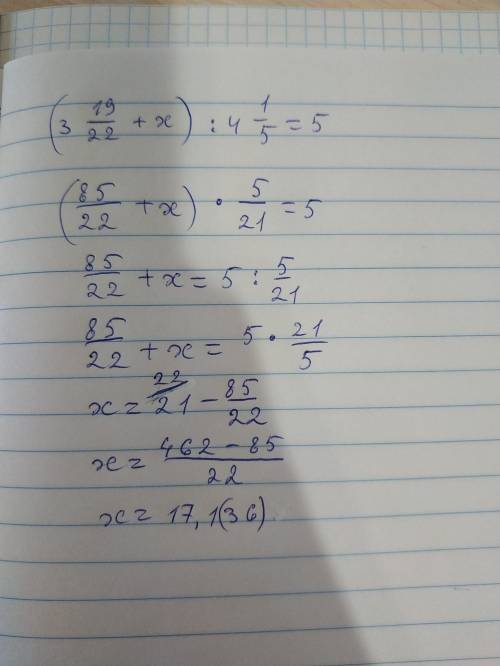 (3 19/22 + x) : 4 1/5 = 5
(85/22 + x) · 5/21 = 5
85/22 + x = 5 : 5/21
85/22 + x = 5 · 21/5
x = 21 22/ - 85/22
x = (462 - 85)/22
x = 17,1(36)